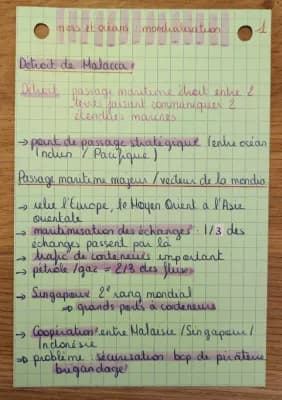 mers et océans : mondialisation
1
Détroit de Malacca :
Détroit : passage maritime étroit entre 2
terres faisant communiquer 2
étendues marines
→ point de passage stratégique (entre océan
Indien / Pacifique)
Passage maritime majeur / vecteur de la mondia
→ relie l'Europe, le Moyen Orient à l'Asie
orientale
→ maritimisation des échanges : 1/3 des
échanges passent par là
→ trafic de conteneurs important
→ pétrole / gaz = 2/3 des flux
→ Singapour 2e rang mondial
⇒ grands ports à conteneurs
→ Coopération entre Malaisie / Singapour /
Indonésie
⇒ problème : sécurisation bcp de piraterie
brigandage